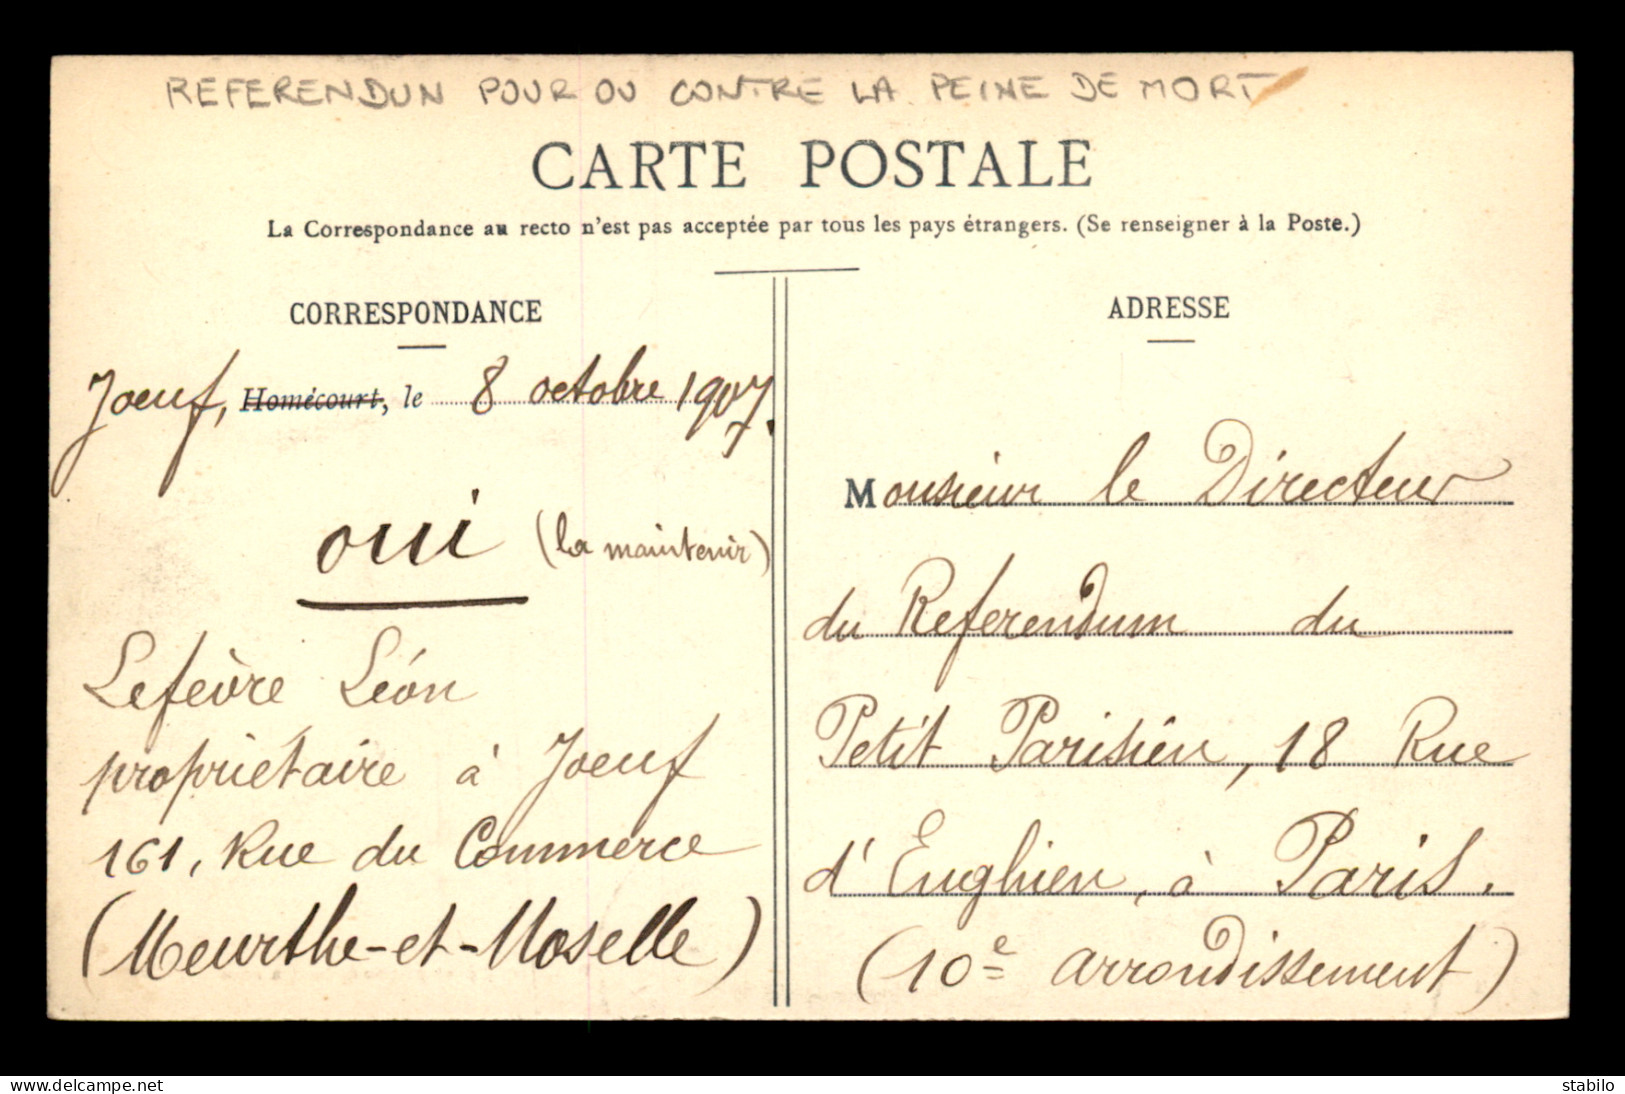 REFERENDUN POUR OU CONTRE LA PEINE DE MORT
CARTE POSTALE
La Correspondance au recto n'est pas acceptée par tous les pays étrangers. (Se renseigner à la Poste.)
CORRESPONDANCE
Joeuf, Homécourt, le 8 octobre 1907.
oui (la maintenir)
Lefèvre Léon
propriétaire à Joeuf
161, Rue du Commerce
(Meurthe-et-Moselle)
ADRESSE
Monsieur le Directeur
du Referendum du
Petit Parisien, 18 Rue
d'Enghien, à Paris.
(10e arrondissement)
www.delcampe.net
stabilo